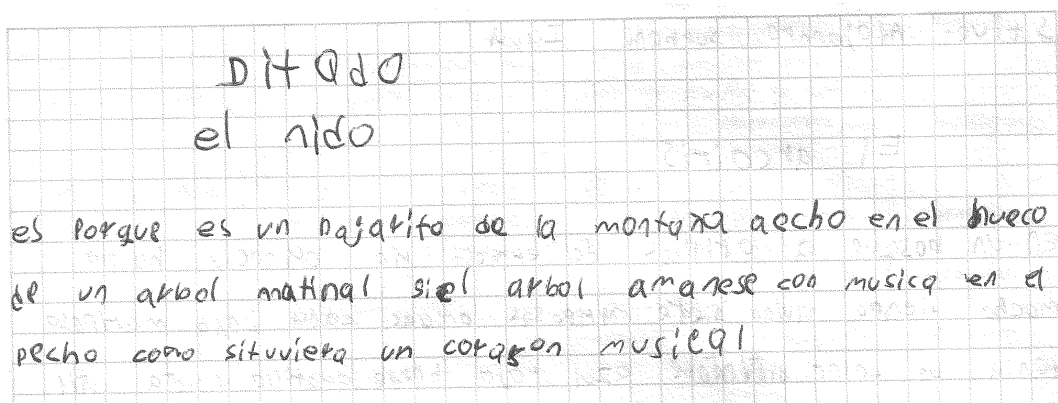 Ditado
el nido
es porque es un pajarito de la montaña aecho en el hueco
de un arbol matinal siel arbol amanese con musica en el
pecho como situviera un corason musical